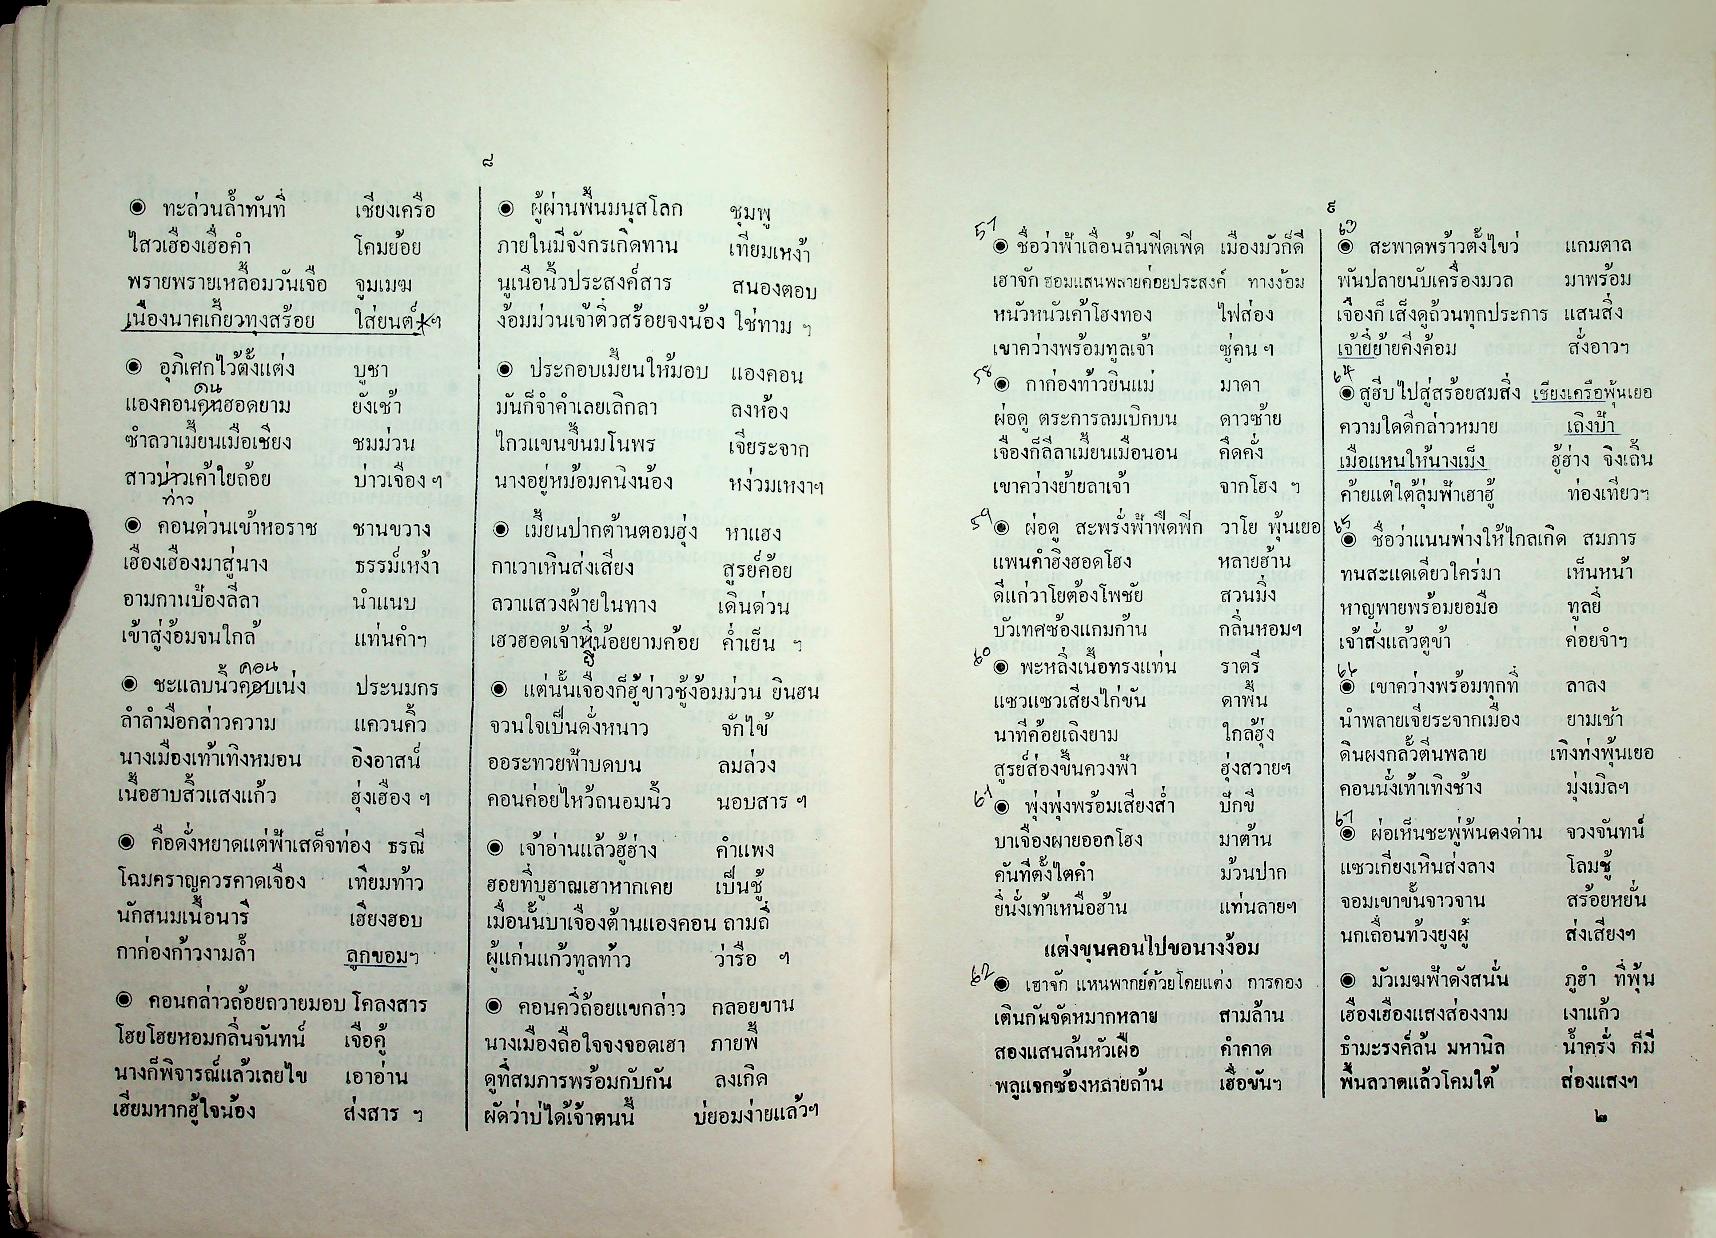 ๘
◉ ทะล่วนล้ำทันที่ เชียงเครือ
ไสวเฮืองเฮื่อคำ โคมย้อย
พรายพรายเหลื้อมวันเจือ จูมเมฆ
เนืองนาคเกี้ยวทุงสร้อย ใส่ยนต์ ฯ
◉ อุภิเศกไว้ตั้งแต่ง บูชา
คน
แองคอนคนฮอดยาม ยังเช้า
ซำลวาเมี้ยนเมื่อเชียง ชมม่วน
สาวบ่าวเค้าใยถ้อย บ่าวเจือง ฯ
ท่าว
◉ คอนด่วนเข้าหอราช ชานขวาง
เฮืองเฮืองมาสู่นาง ธรรม์เหง้า
อามกานป้องลีลา นำแนบ
เข้าสู่ง้อมจนใกล้ แท่นคำฯ
คอน
◉ ชะแลบนิ้วคอบเน่ง ประนมกร
ลำลำมือกล่าวความ แควนคิ้ว
นางเมืองเท้าเทิงหมอน อิงอาสน์
เนื้อฮาบสิ้วแสงแก้ว ฮุ่งเฮือง ฯ
◉ คือดั่งหยาดแต่ฟ้าเสด็จท่อง ธรณี
โฉมคราญควรคาดเจือง เทียมท้าว
นักสนมเนื้อนารี เฮียงฮอบ
กาก่องก้าวงามล้ำ ลูกขอมฯ
◉ คอนกล่าวถ้อยถวายมอบ โคลงสาร
โฮยโฮยหอมกลิ่นจันทน์ เจือคู้
นางก็พิจารณ์แล้วเลยไข เอาอ่าน
เฮียมหากฮู้ใจน้อง ส่งสาร ฯ
◉ ผู้ผ่านพื้นมนุสโลก ชุมพู
ภายในมีจังกรเกิดทาน เทียมเหง้า
นูเนือนิ้วประสงค์สาร สนองตอบ
ง้อมม่วนเจ้าติ่วสร้อยจงน้อง ใช่ทาม ฯ
◉ ประกอบเมี้ยนให้มอบ แองคอน
มันก็จำคำเลยเลิกลา ลงห้อง
ไกวแขนขึ้นมโนพร เจียระจาก
นางอยู่หม้อมคนิงน้อง หง่วมเหงาฯ
◉ เมี้ยนปากต้านตอมฮุ่ง หาแฮง
กาเวาเหินส่งเสียง สูรย์ค้อย
ลวาแสวงผ้ายในทาง เดินด่วน
เฮวฮอดเจ้าหนี่น้อยยามค้อย ค่ำเย็น ฯ
ยี่
◉ แต่นั้นเจืองก็ฮู้ข่าวชู้ง้อมม่วน ยินฮน
จวนใจเป็นดั่งหนาว จักไข้
ออระทวยฟ้าบดบน ลมล่วง
คอนค่อยไหว้ถนอมนิ้ว นอบสาร ฯ
◉ เจ้าอ่านแล้วฮู้ฮ่าง คำแพง
ฮอยที่บูฮาณเฮาหากเคย เป็นชู้
เมื่อนั้นบาเจืองต้านแองคอน ถามถี่
ผู้แก่นแก้วทูลท้าว ว่ารือ ฯ
◉ คอนควี่ถ้อยแขกล่าว กลอยขาน
นางเมืองถือใจจงจอดเฮา ภายพี้
ดูที่สมภารพร้อมกับกัน ลงเกิด
ผัดว่าบ่ได้เจ้าตนนี้ บ่ยอมง่ายแล้วฯ
๙
57 ◉ ชื่อว่าฟ้าเลื่อนล้นฟืดเฟิด เมืองมัวก็ดี
เฮาจัก ฮอมแสนพลายค่อยประสงค์ ทางง้อม
หนัวหนัวเค้าโฮงทอง ไฟส่อง
เขาคว่างพร้อมทูลเจ้า ซู่คน ฯ
58 ◉ กาก่องท้าวยินแม่ มาดา
ผ่อดู ตระการลมเบิกบน ดาวซ้าย
เจืองก็ลีลาเมี้ยนเมือนอน คึดคั่ง
เขาคว่างย้ายลาเจ้า จากโฮง ฯ
59 ◉ ผ่อดู สะพรั่งฟ้าฟืดฟิก วาโย พุ้นเยอ
แพนคำฮิงฮอดโฮง หลายฮ้าน
ดีแก่วาโยต้องโพชัย สวนมิ่ง
บัวเทศซ้องแกมก้าน กลิ่นหอมฯ
60 ◉ พะหลิ่งเนื้อทรงแท่น ราตรี
แซวแซวเสียงไก่ขัน ดาพื้น
นาทีค้อยเถิงยาม ใกล้ฮุ่ง
สูรย์ส่องขึ้นควงฟ้า ฮุ่งสวายฯ
61 ◉ พุ่งพุ่งพร้อมเสียงส่ำ ปักขี
บาเจืองผายออกโฮง มาต้าน
คันทีตั้งไตคำ ม้วนปาก
ยี่นั่งเท้าเหนือฮ้าน แท่นลายฯ
แต่งขุนคอนไปขอนางง้อม
62 ◉ เฮาจัก แหนพากย์ด้วยโดยแต่ง การดอง
เตินกันจัดหมากหลาย สามล้าน
สองแสนล้นหัวเผือ คำคาด
พลูแจกซ้องหลายถ้าน เฮื่อขันฯ
63
◉ สะพาดพร้าวตั้งไขว่ แกมตาล
พันปลายนับเครื่องมวล มาพร้อม
เจืองก็ เส็งดูถ้วนทุกประการ แสนสิ่ง
เจ้ายี่ย้ายคิงค้อม สั่งอาวฯ
64
◉ สูฮีบไปสู่สร้อยสมสิ่ง เชียงเครือพุ้นเยอ
ความใดดีกล่าวหมาย เถิงป้า
เมื่อแหนให้นางเม็ง ฮู้ฮ่าง จิงเถิ้น
ค้ายแต่ใต้ลุ่มฟ้าเฮาฮู้ ท่องเทียวฯ
65
◉ ชื่อว่าแนนพ่างให้ไกลเกิด สมภาร
ทนสะแดเดียวใคร่มา เห็นหน้า
หาญพายพร้อมยอมือ ทูลยี่
เจ้าสั่งแล้วตูข้า ค่อยจำฯ
66
◉ เขาคว่างพร้อมทุกที่ ลาลง
นำพลายเจียระจากเมือง ยามเช้า
ดินผงกลั้วตีนพลาย เทิงท่งพุ้นเยอ
คอนนั่งเท้าเทิงช้าง มุ่งเมิลฯ
67
◉ ผ่อเห็นชะพู่พ้นดงด่าน จวงจันทน์
แซวเกียงเหินส่งลาง โลมชู้
จอมเขาขั้นจาวจาน สร้อยหยั่น
นกเถื่อนท้วงยูงผู้ ส่งเสียงฯ
◉ มัวเมฆฟ้าดังสนั่น ภูฮำ ที่พุ้น
เฮืองเฮืองแสงส่องงาม เงาแก้ว
ธำมะรงค์ล้น มหานิล น้ำครั่ง ก็มี
พื้นลวาดแล้วโคมใต้ ส่องแสงฯ
๒